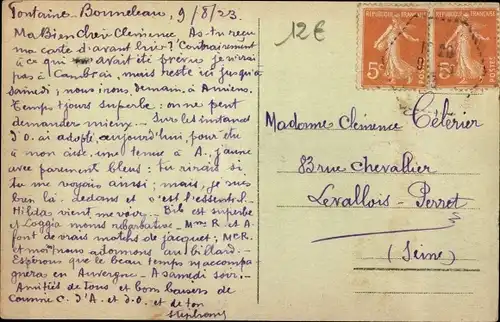 Fontaine Bonneleau, 9/8/23.
Ma Bien Chère Clémence As-tu reçu
ma carte d'avant hier? Contrairement
à ce qui avait été prévu je n'irai
pas à Cambrai, mais reste ici jusqu'à
samedi; nous irons demain à Amiens.
Temps tjours superbe: on ne peut
demander mieux. Sur les instances
d'O. ai adopté, aujourd'hui, pour être
à mon aise, une tenue à A., jaune
avec parement bleus: tu rirais si
tu me voyais ainsi; mais, je suis
bien là-dedans et c'est l'essentiel.
Hilda vient me voir. Bib est superbe
et Loggia moins rébarbative. Mme R. et A.
font de vrais matchs de jacquet; Mr R.
et moi nous adonnons au billard.
Espérons que le beau temps m'accompa
gnera en Auvergne. A samedi soir.
Amitiés de tous et bons baisers de
C. d'A. et d'O. et de ton
Stéphane
12€
REPUBLIQUE FRANÇAISE
5c
POSTES
REPUBLIQUE FRANÇAISE
5c
POSTES
Madame Clémence Télérier
83 rue Chevallier
Levallois-Perret
(Seine)